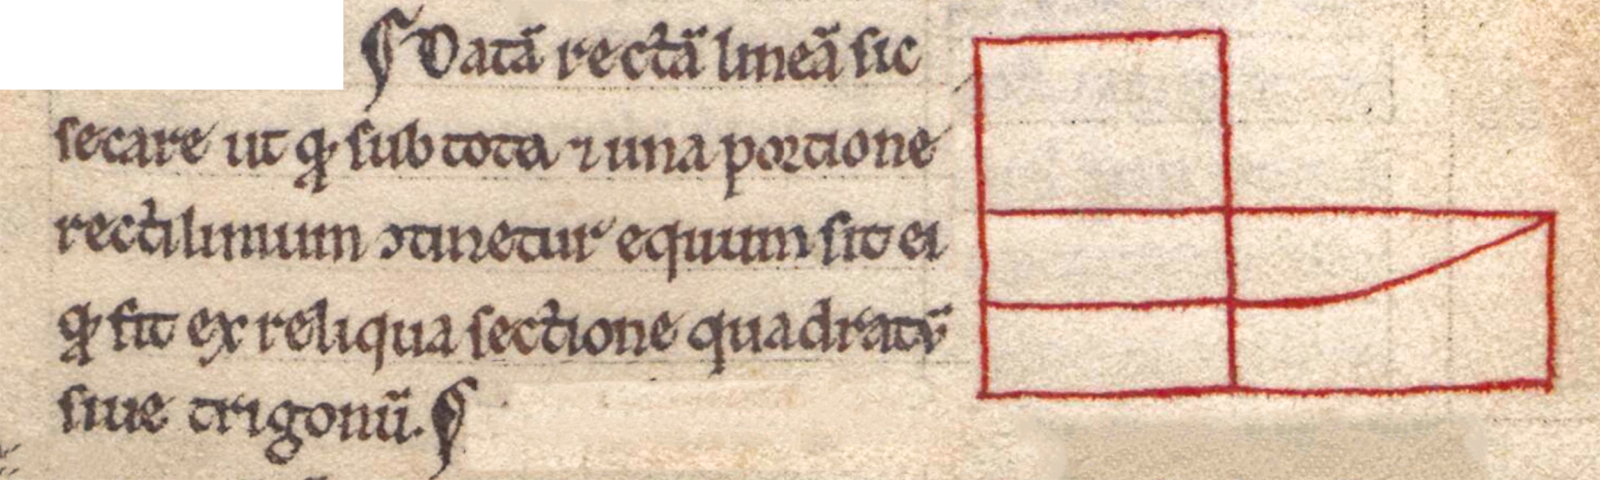 ¶ Datã rectã lineã sic
secare ut qͥ sub tota ⁊ una portione
rectiliniuum ↄtinetur equum sit ei
qͥ fit ex reliqua sectione quadratũ
siue trigonũ. ¶